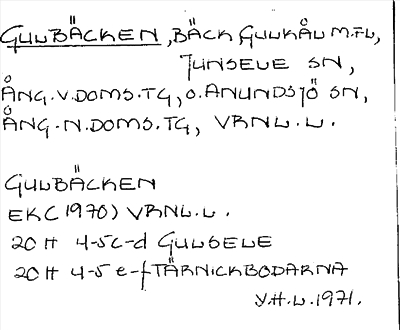 GULBÄCKEN, BÄCK, GULKÅL M.FL,
JUNSELE SN,
ÅNG.V.DOMS.TG, O.ANUNDSJÖ SN,
ÅNG.N.DOMS.TG, VRNL.L.
GULBÄCKEN
EKC(1970) VRNL.L.
20 H 4-5c-d GULSELE
20 H 4-5 e-f TÄRNICKBODARNA
Y.H.L.1971.